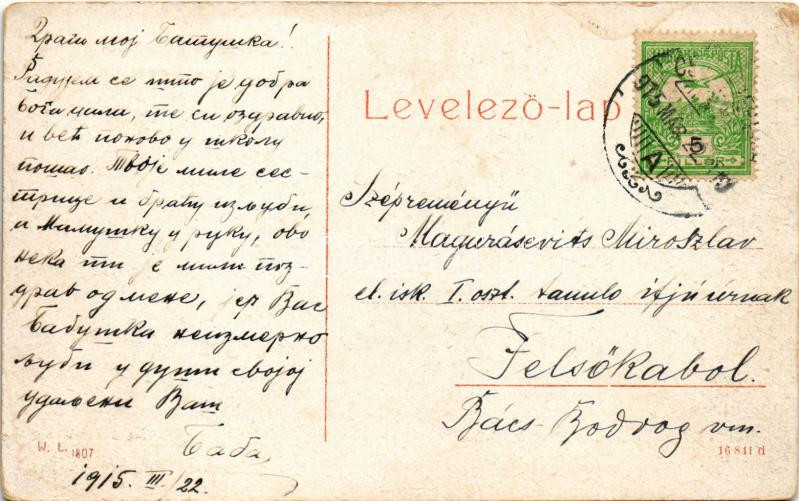 Драги мој Батушка!
Радујем се што је добра
Бога дала, те си оздравио,
и већ поново у школу
пошао. Твоје миле сес-
трице и браћу изљуби,
и Мамушку у руку, ово
нека ти је мили поз-
драв од мене, јер Вас
Бабушка неизмерно
љуби у души својој
удаљени Ваш
Баба,
1915. III/22.
W. L. 1807
Levelező-lap
5
FILLÉR
Szépreményű
Magarásevits Miroszlav
el. isk. I. oszt. tanuló ifjú úrnak
Felsőkabol.
Bács-Bodrog vm.
16811 d